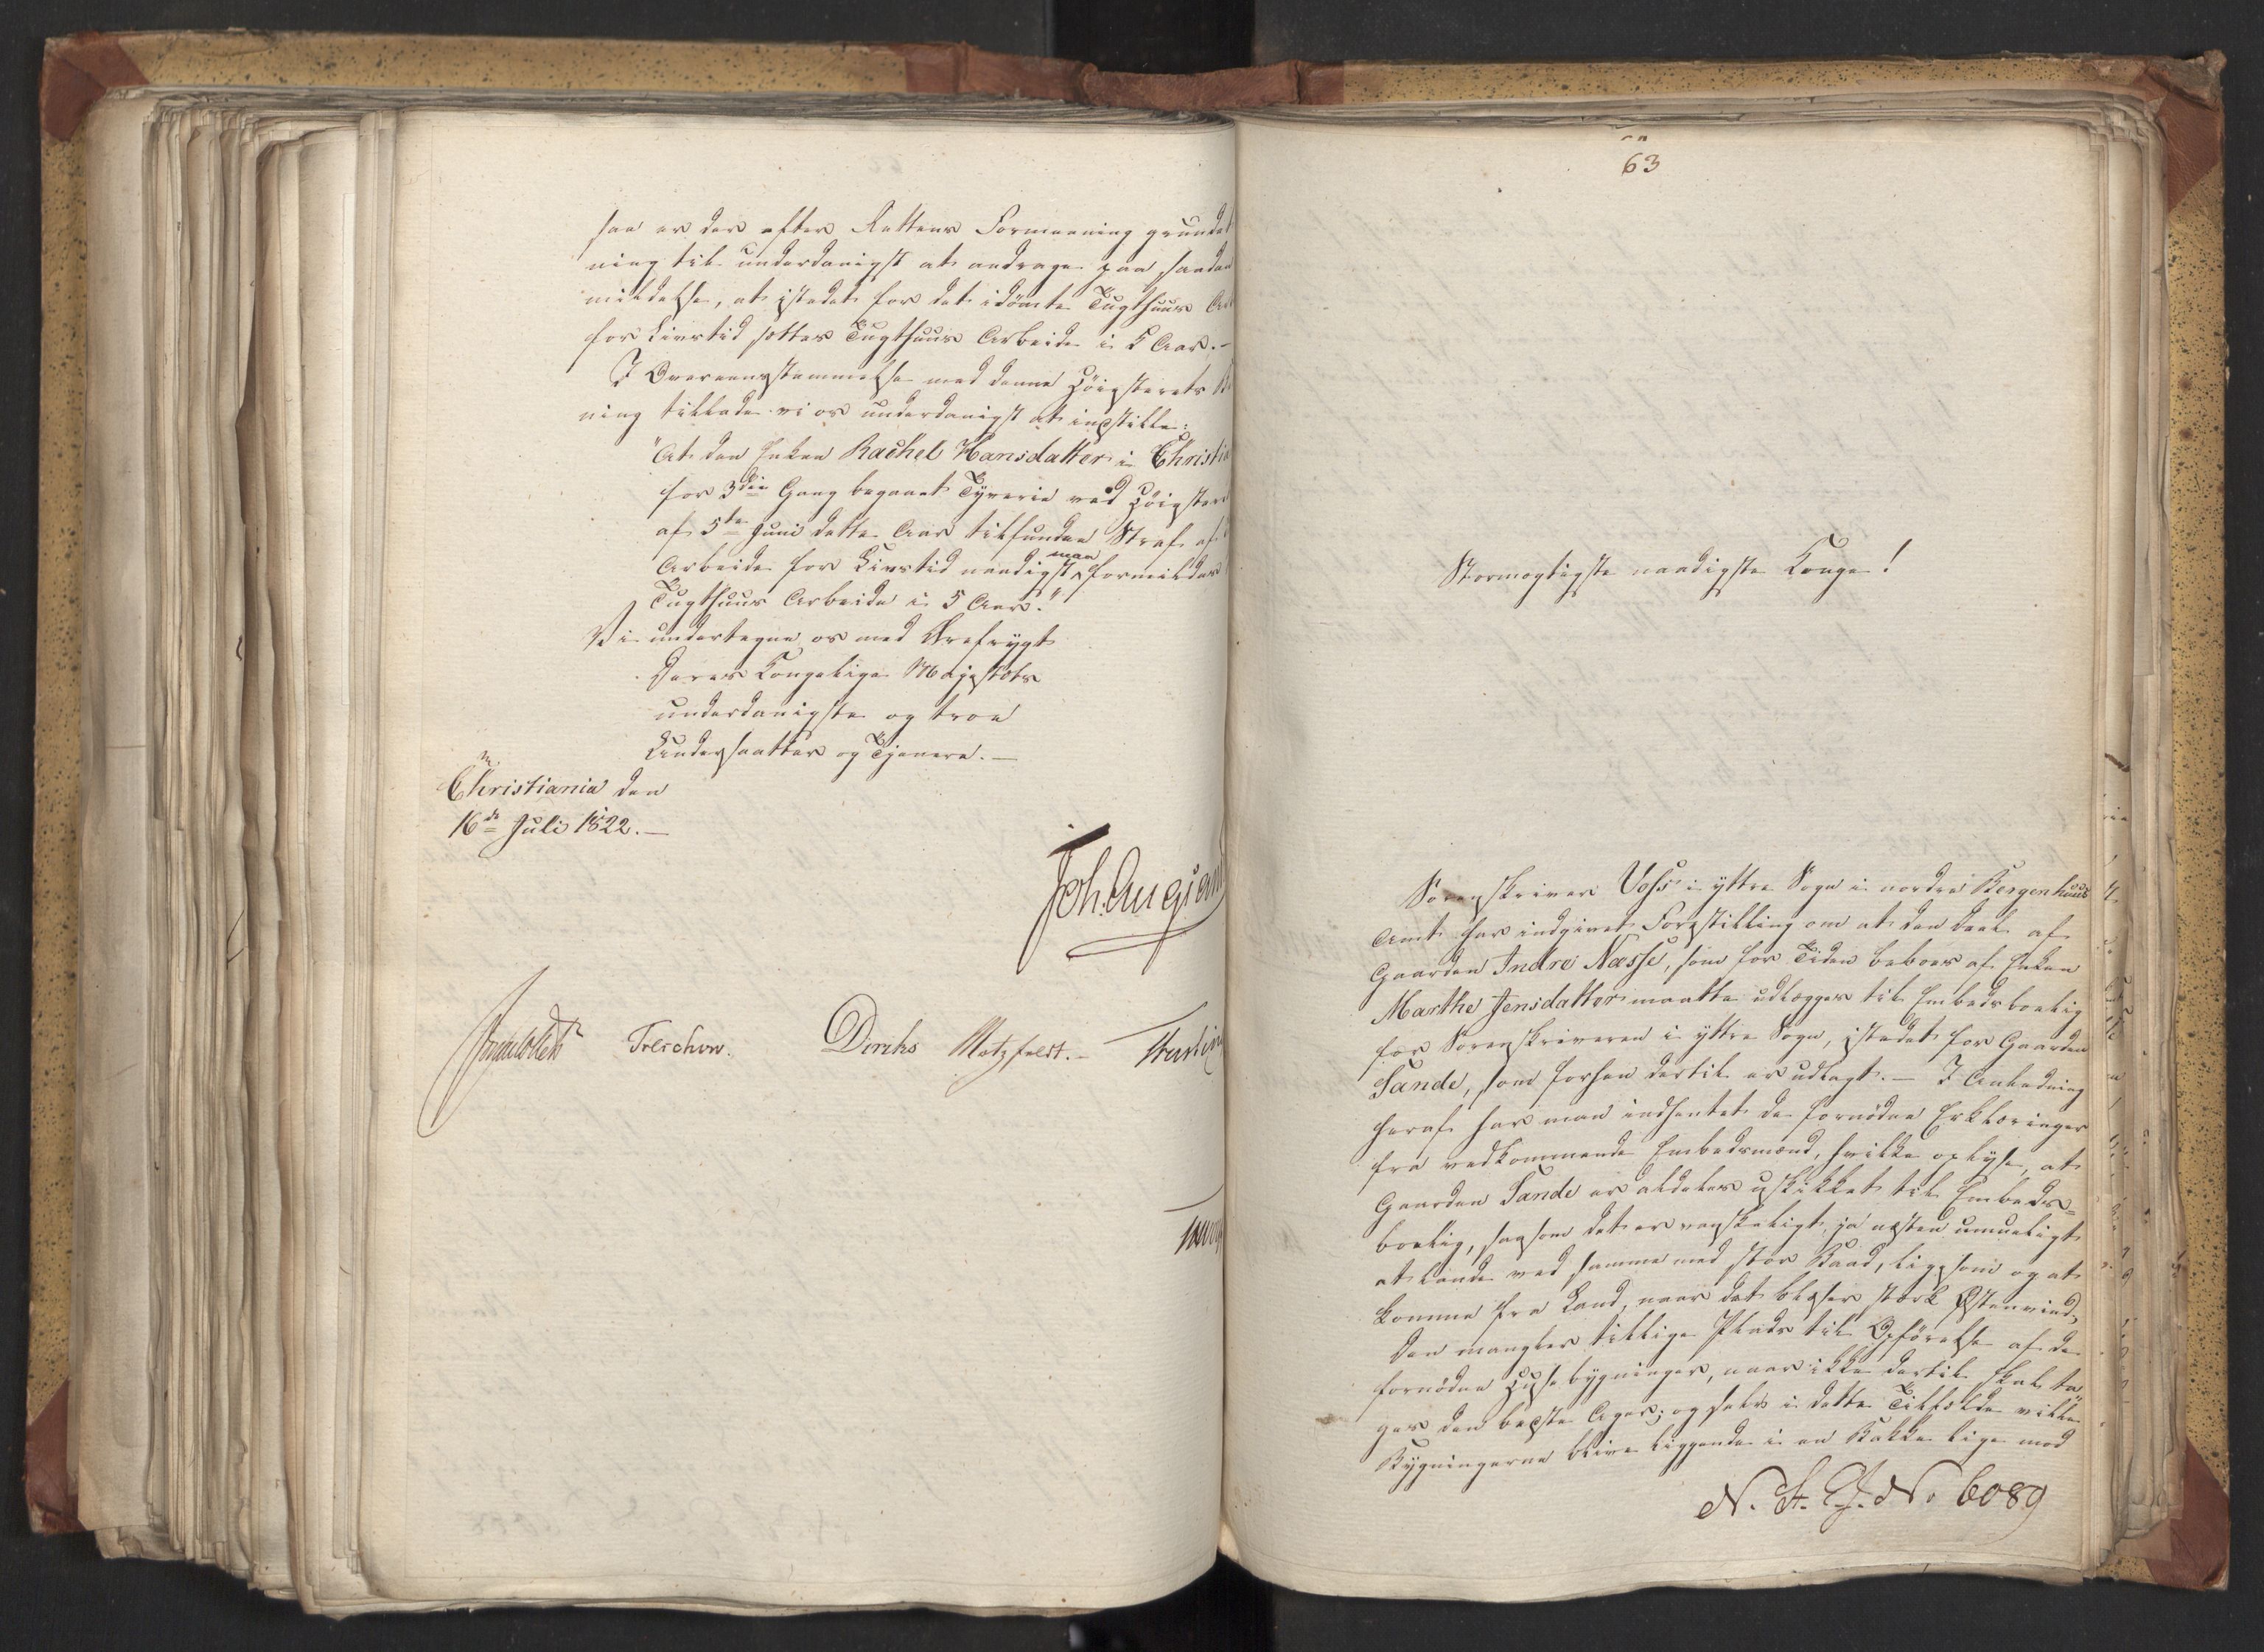 saa er der efter Rettens Formeening grundet
ning til underdanigst at andrage paa saadan
mildelse, at istedet for det idömte Tugthuus Ar
for Livstid sættes Tugthuus Arbeide i 5 Aar. –
I Overeensstemmelse med denne Höiesterets B
ning tillade vi os underdanigst at indstille:
"At den Enken Rachel Hansdatter i Christia
for 3die Gang begaaet Tyverie ved Höiester
af 5te Juni dette Aar tilfunden Straf af
Arbeide for Livstid naadigst maa formildes
Tugthuus Arbeide i 5 Aar."
Vi undertegne os med Ærefrygt
Deres Kongelige Majestæts
underdanigste og troe
Undersaatter og Tjenere. –
Christiania den
16de Juli 1822. –
Joh. Aug Sand
Treschow. Diriks Motzfeldt. –
63
Stormægtigste naadigste Konge!
Sorenskriver Voss i yttre Sogn i nordre Bergenhuus
Amt har indgivet Forestilling om at den Deel af
Gaarden Indre Næsse, som for Tiden beboes af Enken
Marthe Jensdatter maatte udlægges til Embedsboelig
for Sorenskriveren i yttre Sogn, istedet for Gaarden
Sande, som forhen dertil er udlagt. – I Anledning
heraf har man indhentet de fornödne Erklæringer
fra vedkommende Embedsmænd, hvilke oplyse, at
Gaarden Sande er aldeles uskikket til Embeds-
boelig, saasom det er vanskeligt, ja næsten umueligt
at lande ved samme med stor Baad, ligesom og at
komme fra Land, naar det blæser stærk Östenvind,
Den mangler tillige Plads til Opförelse af de
fornödne Huusebygninger, naar ikke dertil skal ta-
ges den beste Ager; og selv i dette Tilfælde ville
Bygningerne blive liggende i en Bakke lige mod
N. St. E. J. No 6089